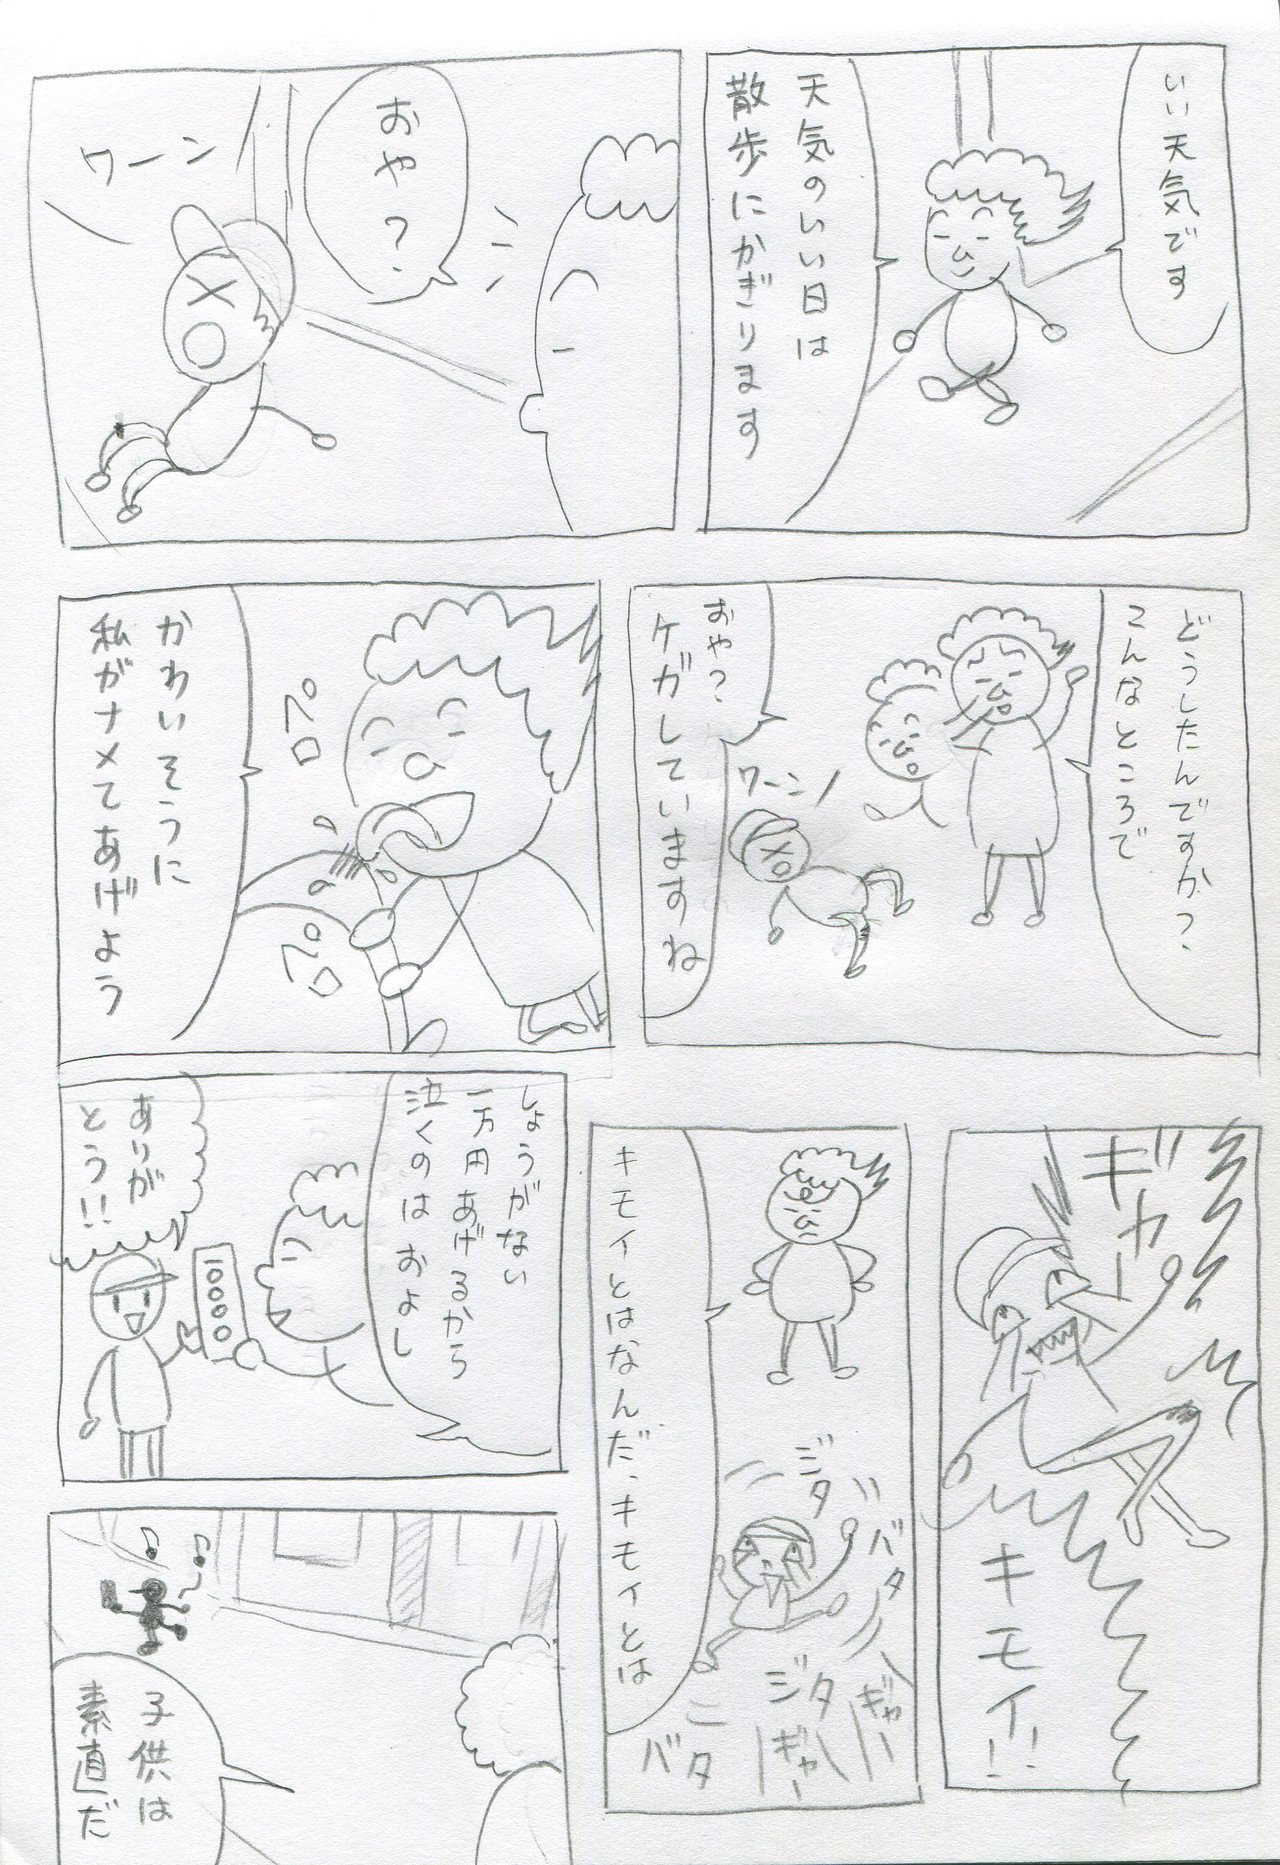 いい天気です
天気のいい日は
散歩にかぎります
おや?
ワーン
どうしたんですか?
こんなところで
おや?
ケガしていますね
ワーン
かわいそうに
私がナメてあげよう
ペロ
ペロ
ギャー
キモイ!!
キモイとはなんだ、キモイとは
ジタ
バタ
ジタ
バタ
ギャー
ギャー
しょうがない
一万円あげるから
泣くのはおよし
ありが
とう!!
10000
♪
♪
子供は
素直だ